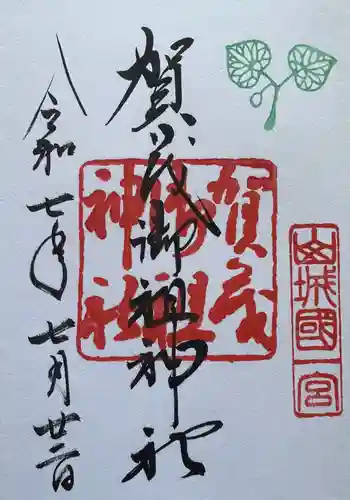 山城國一宮
賀茂御祖神社
賀茂
御祖
神社
令和七年七月廿二日